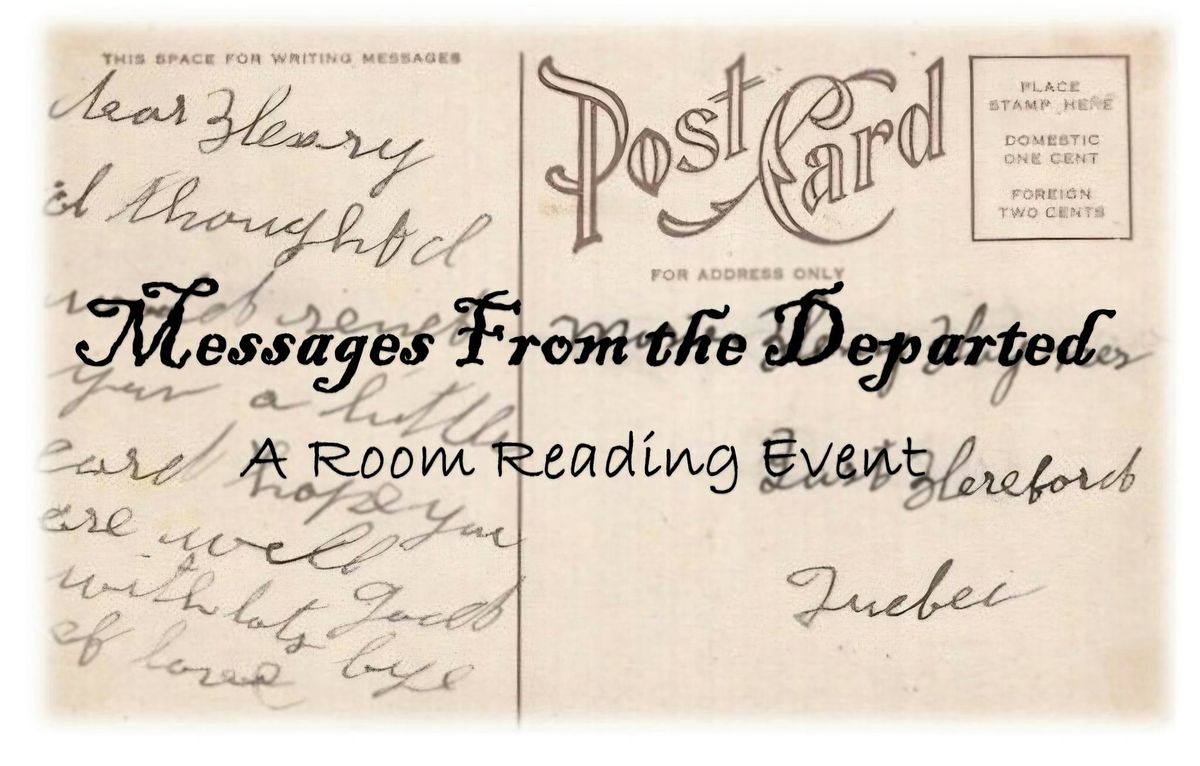 THIS SPACE FOR WRITING MESSAGES
Dear Henry
I thought I
would send
you a little
card hope you
are well
with lots Good
of love bye
Post Card
PLACE
STAMP HERE
DOMESTIC
ONE CENT
FOREIGN
TWO CENTS
FOR ADDRESS ONLY
Henry
East Hereford
Quebec
Messages From the Departed
A Room Reading Event